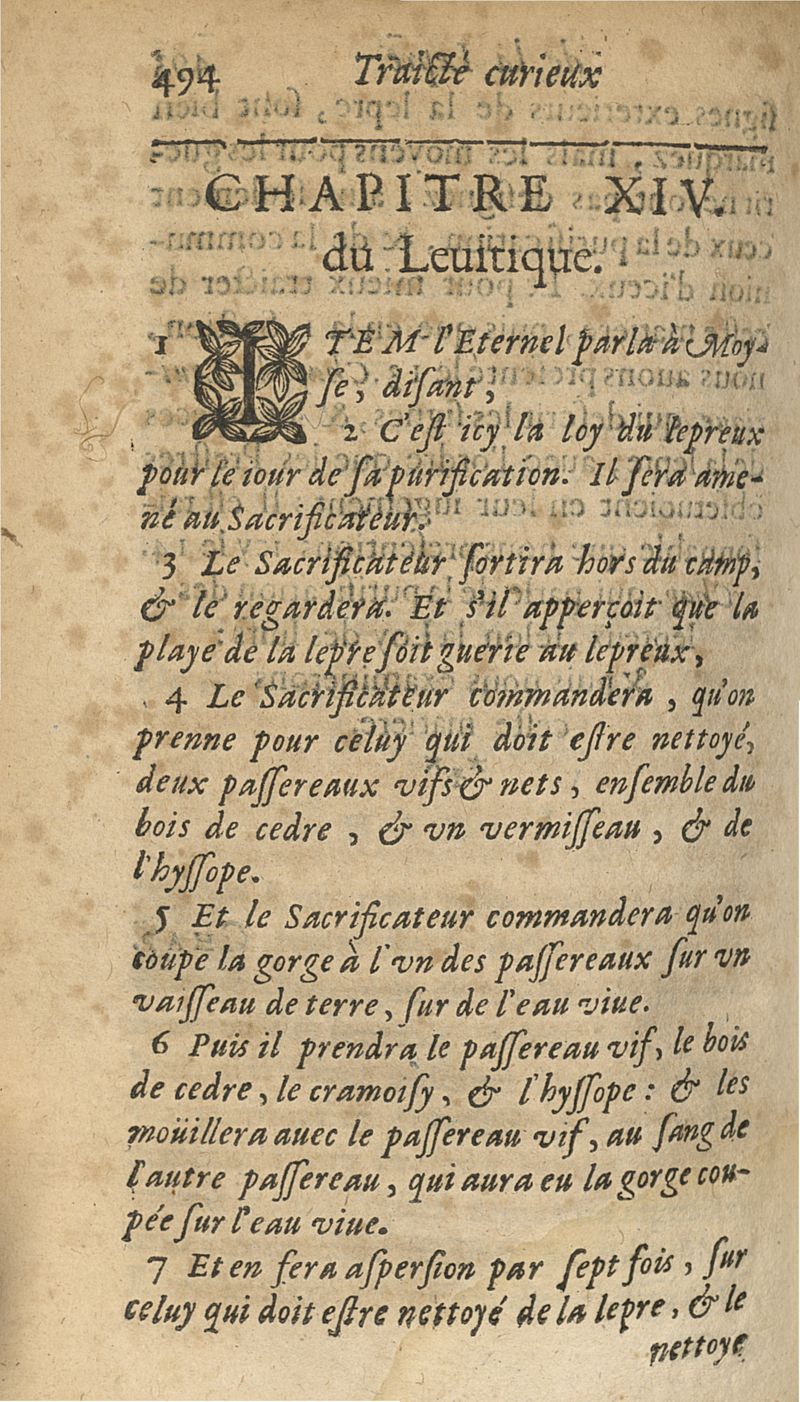 494 Traicté curieux
CHAPITRE XIV.
du Leuitique.
1 ITEM l'Eternel parla à Moy-
ſe, diſant,
2 C'eſt icy la loy du lepreux
pour le iour de ſa purification. Il ſera ame-
né au Sacrificateur.
3 Le Sacrificateur ſortira hors du camp,
& le regardera. Et s'il apperçoit que la
playe de la lepre ſoit guerie au lepreux,
4 Le Sacrificateur commandera, qu'on
prenne pour celuy qui doit eſtre nettoyé,
deux paſſereaux vifs & nets, enſemble du
bois de cedre, & vn vermiſſeau, & de
l'hyſſope.
5 Et le Sacrificateur commandera qu'on
coupe la gorge à l'vn des paſſereaux ſur vn
vaiſſeau de terre, ſur de l'eau viue.
6 Puis il prendra le paſſereau vif, le bois
de cedre, le cramoiſy, & l'hyſſope: & les
moüillera auec le paſſereau vif, au ſang de
l'autre paſſereau, qui aura eu la gorge cou-
pée ſur l'eau viue.
7 Et en fera aſperſion par ſept fois, ſur
celuy qui doit eſtre nettoyé de la lepre, & le
nettoye